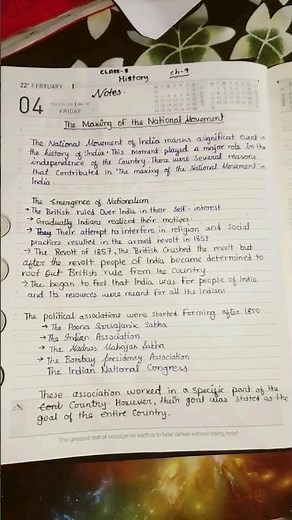 CLASS-8
History
ch-9
22' FEBRUARY
Notes-
04
FRIDAY
The Making of the National Movement
The National Movement of India marks a significant event in
the history of India. This moment played a major role in the
independence of the Country. There were several reasons
that contributed in 'The making of the National Movement in
India
The Emergence of Nationalism
→ The British ruled over India in their self-interest
→ Gradually Indians realized their motives
→ They Their attempt to interfere in religion and Social
practices resulted in the armed revolt in 1857
→ The Revolt of 1857, the British crushed the revolt but
after the revolt the people of India became determined to
root out British rule from the Country
→ The began to feel that India was for people of India
and its resources were meant for all the Indians
The political associations were started forming after 1850
→ The Poona Sarvajanik Sabha
→ The Indian Association
→ The Madras Mahajan Sabha
→ The Bombay Presidency Association
The Indian National Congress
These association worked in a specific part of the
Cont Country. However, their goal was stated as the
goal of the entire Country.
The greatest test of courage on earth is to bear defeat without losing heart